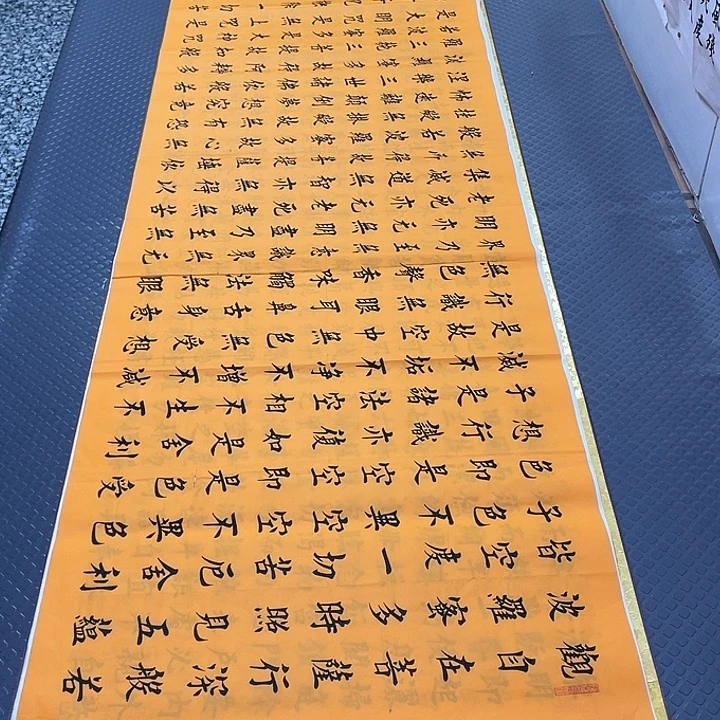 觀自在菩薩行深般若
波羅蜜多時照見五蘊
皆空度一切苦厄舍利
子色不異空空不異色
色即是空空即是色受
想行識亦復如是舍利
子是諸法空相不生不
滅不垢不淨不增不減
是故空中無色無受想
行識無眼耳鼻舌身意
無色聲香味觸法無眼
界乃至無意識界無无
明亦无無明盡乃至無
老死亦无老死盡無苦
集滅道無智亦無得以
無所得故菩提薩埵依
般若波羅蜜多故心無
罣礙無罣礙故無有恐
怖遠離顛倒夢想究竟
涅槃三世諸佛依般若
波羅蜜多故得阿耨多
羅三藐三菩提故知般
若波羅蜜多是大神咒
是大明咒是無上咒是